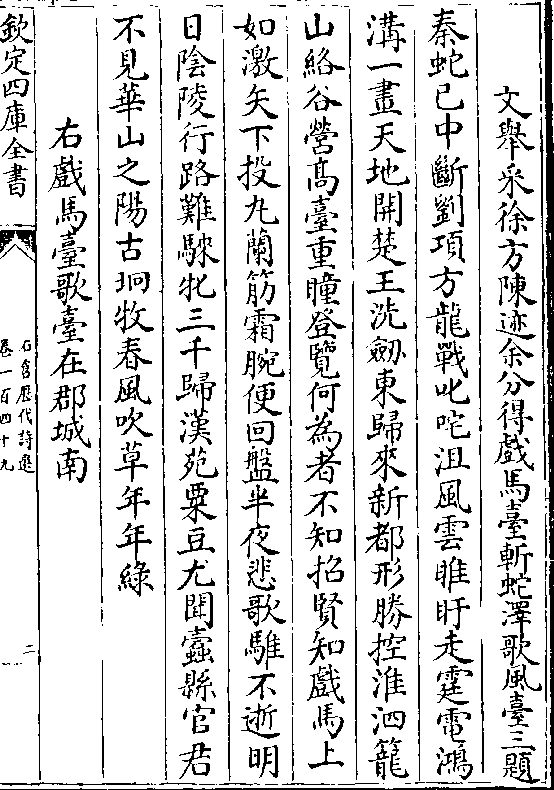 文舉采徐方陳迹余分得戲馬臺斬蛇澤歌風臺三題
秦蛇已中斷劉項方龍戰叱咤沮風雲睢盱走霆電鴻
溝一畫天地開楚王洗劒東歸來新都形勝控淮泗籠
山絡谷營髙臺重瞳登覽何為者不知招賢知戲馬上
如激矢下投丸蘭筋霜腕便回盤半夜悲歌騅不逝明
日陰陵行路難駃牝三千歸漢苑粟豆尤聞蠹縣官君
不見華山之陽古坰牧春風吹草年年綠
右戲馬臺歌臺在郡城南
欽定四庫全書
石倉歷代詩選
卷一百四十九
二